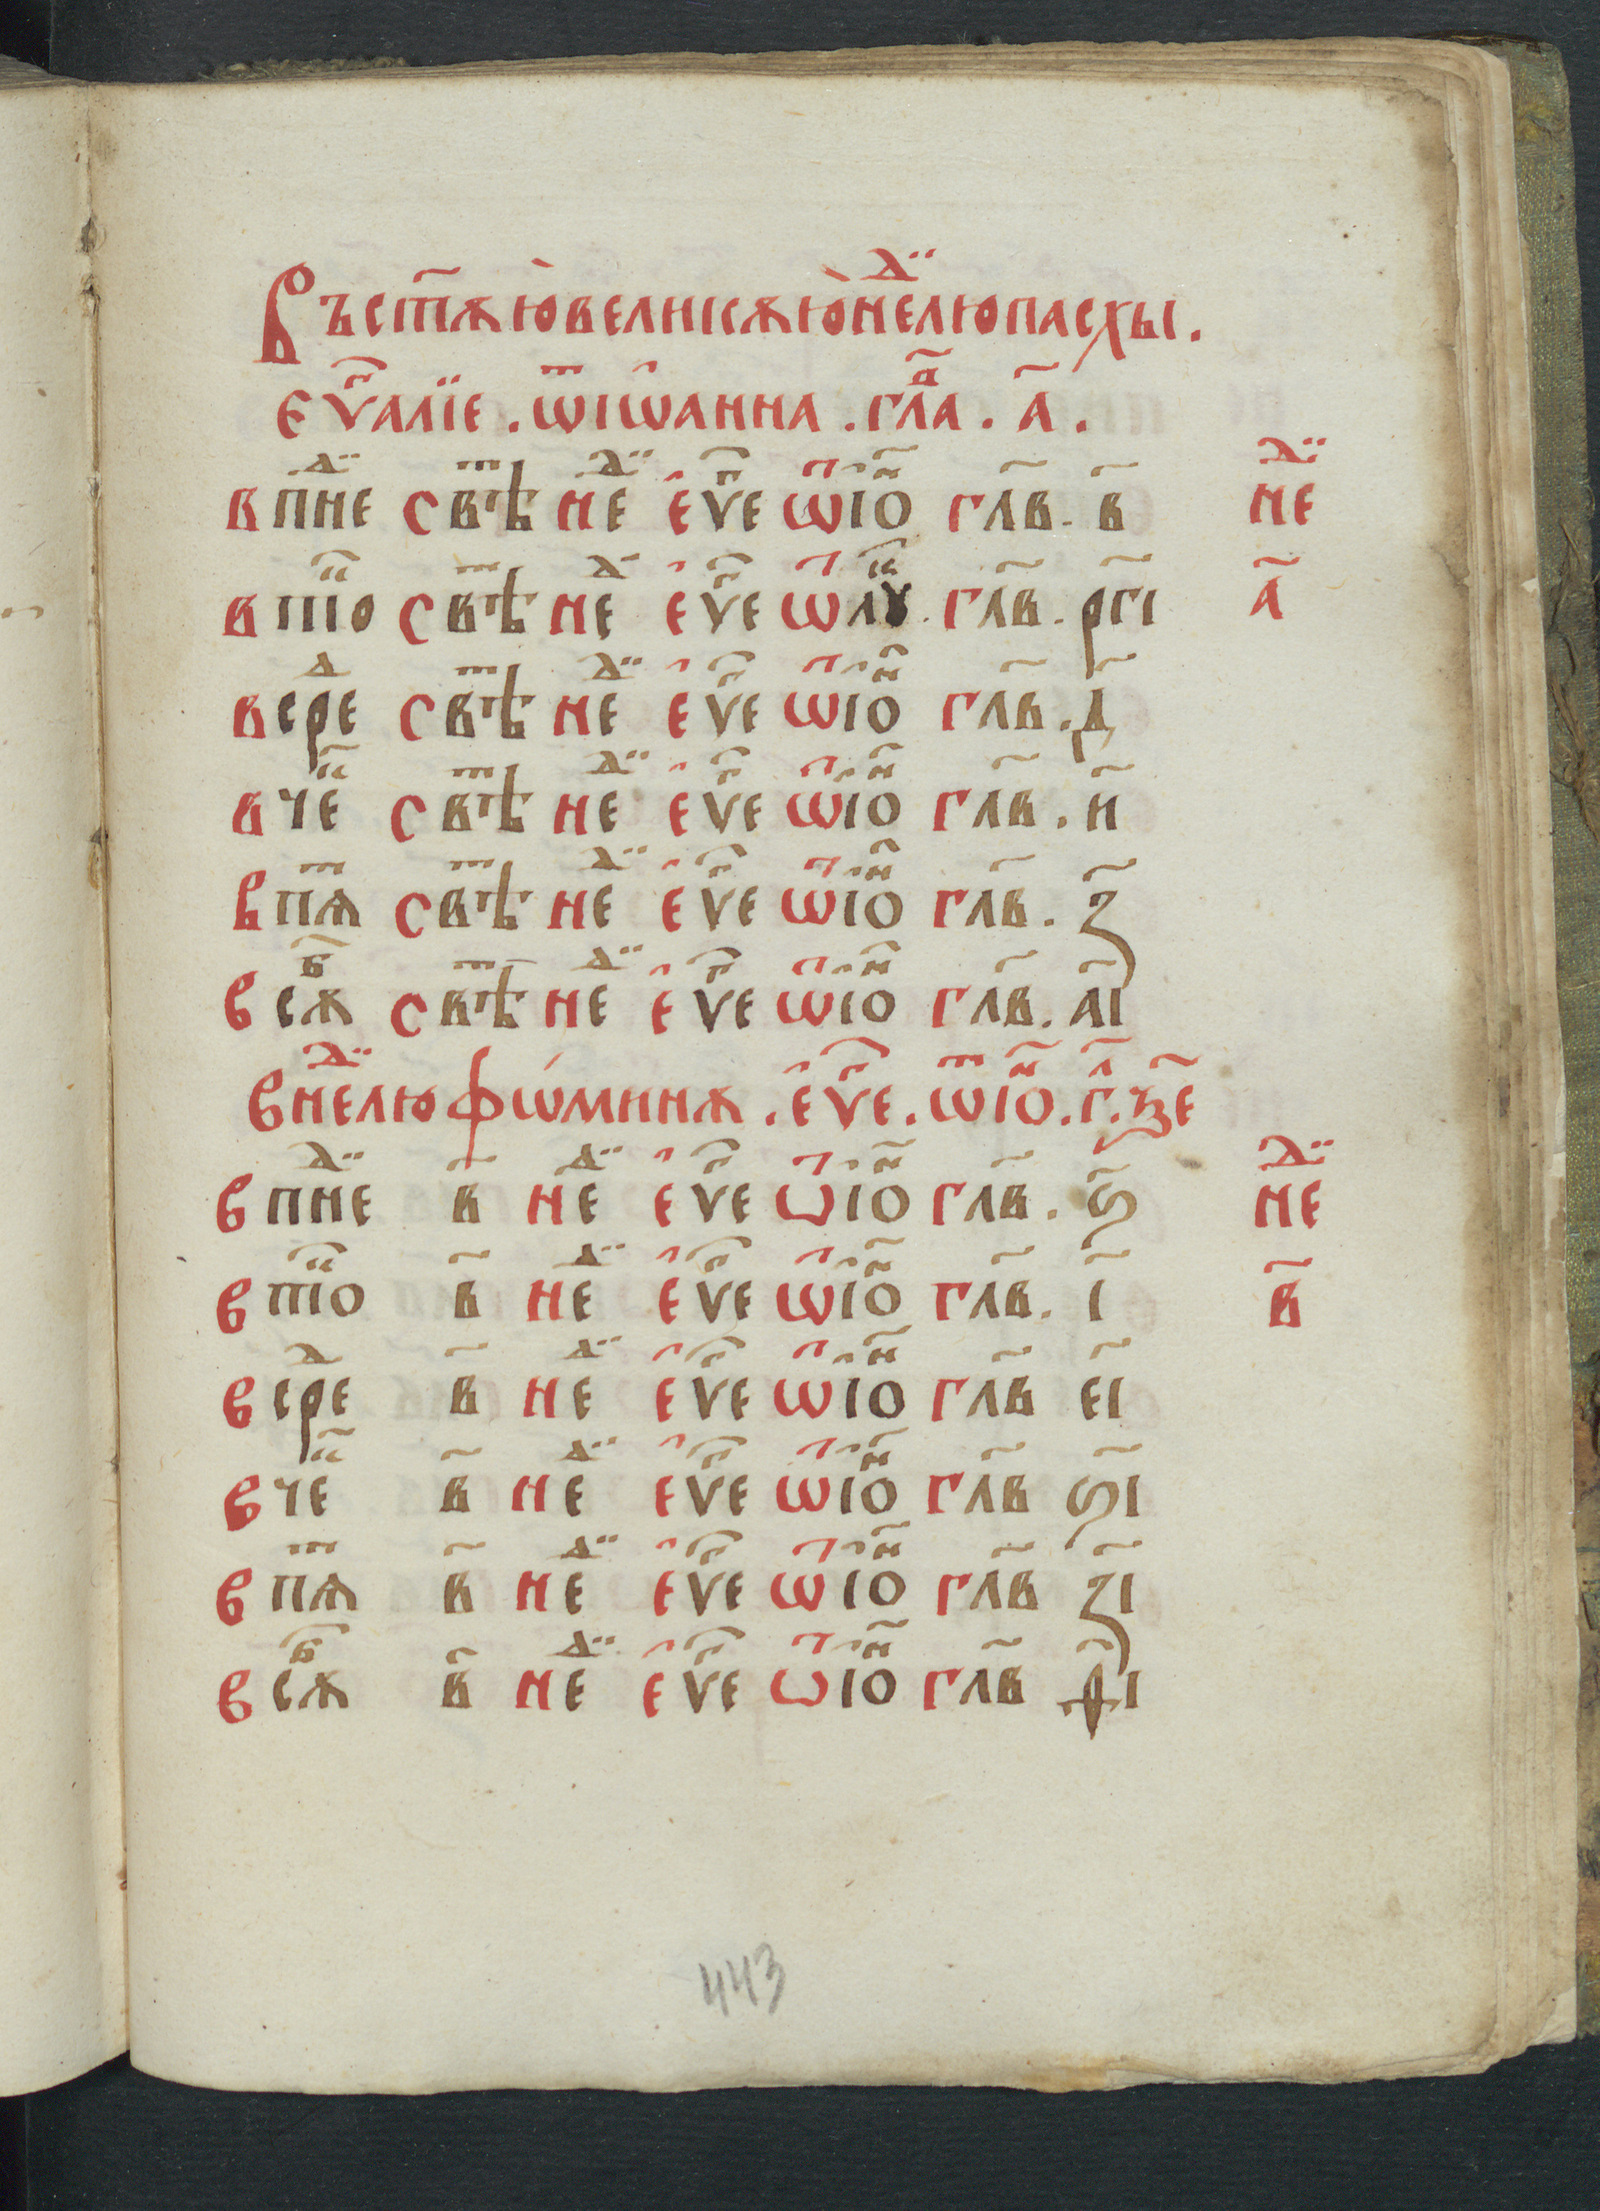 Въ ст҃ꙋю великꙋю нⷣелю пасхы.
Еѵⷢ҇алїе. ѿ іѡанна. глⷡ҇а. а҃.
в пⷣне свⷮѣ нⷣе еѵⷢ҇е ѿ іѡⷩ҇ гл҃в. в҃ нⷣе
в втⷪ҇ свⷮѣ нⷣе еѵⷢ҇е ѿ лꙋⷦ҇. гл҃в. рг҃і а҃
в среⷣ свⷮѣ нⷣе еѵⷢ҇е ѿ іоⷩ҇ гл҃в. д҃
в чеⷦ҇ свⷮѣ нⷣе еѵⷢ҇е ѿ іоⷩ҇ гл҃в. и҃
в пѧⷮ свⷮѣ нⷣе еѵⷢ҇е ѿ іоⷩ҇ гл҃в. з҃
в сѫⷠ҇ свⷮѣ нⷣе еѵⷢ҇е ѿ іоⷩ҇ гл҃в. а҃і
в нⷣелю фѡминѫ. еѵⷢ҇е. ѿ іоⷩ҇. гⷧ҇. ѯ҃е
в пⷣне в҃ нⷣе еѵⷢ҇е ѿ іоⷩ҇ гл҃в. ѕ҃ нⷣе
в втⷪ҇ в҃ нⷣе еѵⷢ҇е ѿ іоⷩ҇ гл҃в. і҃ в҃
в среⷣ в҃ нⷣе еѵⷢ҇е ѿ іоⷩ҇ гл҃в е҃і
в чеⷦ҇ в҃ нⷣе еѵⷢ҇е ѿ іоⷩ҇ гл҃в ѕ҃і
в пѧⷮ в҃ нⷣе еѵⷢ҇е ѿ іоⷩ҇ гл҃в з҃і
в сѫⷠ҇ в҃ нⷣе еѵⷢ҇е ѿ іоⷩ҇ гл҃в ѳ҃і
443